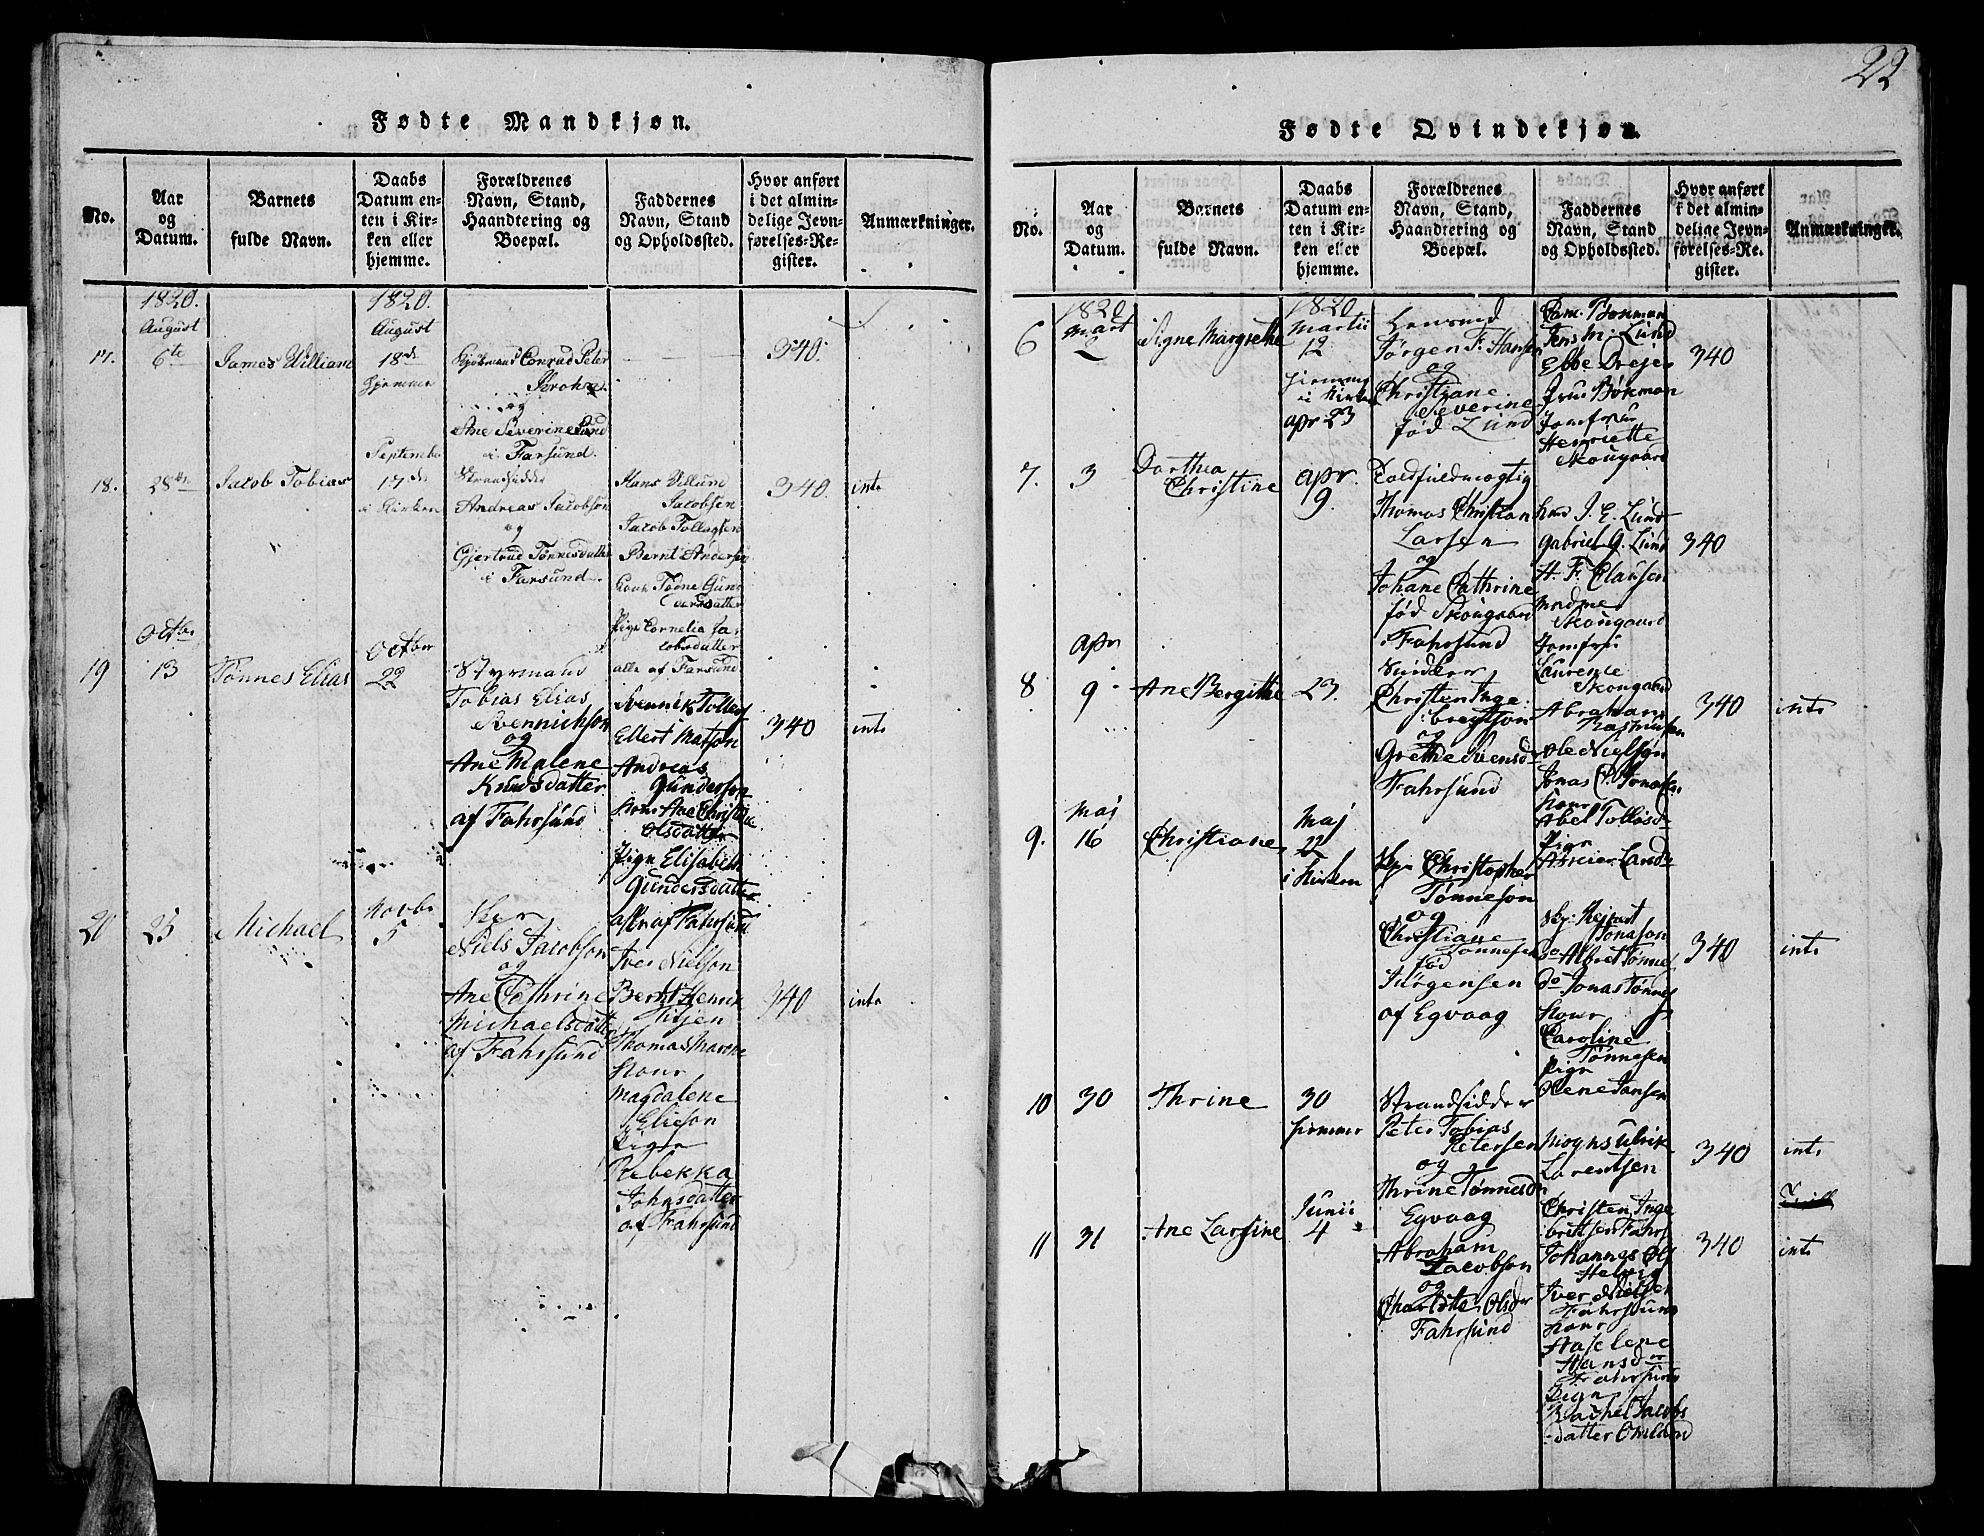 22
Fødte Mandkjøn.
No.
Aar
og
Datum.
Barnets
fulde Navn.
Daabs
Datum en-
ten i Kir-
ken eller
hjemme.
Forældrenes
Navn, Stand,
Haandtering og
Boepæl.
Faddernes
Navn, Stand
og Opholdssted.
Hvor anført
i det almin-
delige Jevn-
førelses-Re-
gister.
Anmærkninger.
1820.
August
17.
6te
James William
1820.
August
18de
hjemme
Kjøbmand Conrad Peter
Krohn
og
Ane Severine Lund
i Farsund.
340.
18.
28de
Jacob Tobias
September
17de
i Kirken
Strandsidder
Andreas Jacobsen
og
Gjertrud Tønnesdatter
i Farsund.
Hans Villum
Jacobsen
Jacob Tollagsen
Bernt Andersen
Kone Todne Gun-
dersdatter
Pige Cornelia Ja-
cobsdatter
alle af Farsund.
340.
intr
Octbr
19
13
Tønnes Elias
October
22
Styrmand
Tobias Elias
Svennichson
og
Ane Malene
Knudsdatter
af Fahrsund
Svennik Tollefs
Ellert Matson
Andreas
Gunderson
Kone Ane Christine
Olsdatter
Pige Elisabeth
Gundersdatter
alle af Fahrsund
340
intr
20
25
Michael
Novbr
5
Skpr
Niels Jacobson
og
Ane Cathrine
Michaelsdatter
af Fahrsund
Iver Nielson
Bernt Henrik
Titjen
Thomas
Kone
Magdalene
Elieson
Pige
Rebekka
Johnsdatter
af Fahrsund
340
intr
Fødte Qvindekjøn.
No.
Aar
og
Datum.
Barnets
fulde Navn.
Daabs
Datum en-
ten i Kir-
ken eller
hjemme.
Forældrenes
Navn, Stand,
Haandtering og
Boepæl.
Faddernes
Navn, Stand
og Opholdssted.
Hvor anført
i det almin-
delige Jevn-
førelses-Re-
gister.
Anmærkninger.
1820
6
Mart
2
Signe Margrethe
1820
Martii
12
hiemme
i Kirken
apr 23
Lensmd
Jørgen F. Hansen
og
Christiane
Severine
fød Lund
Cam. Bøkman
Jens M. Lund
Ebbe Dreyer
Fru Bøkman
Jomfru
Henriette
Skougaard
340
7.
3
Dorthea
Christine
apr.
9.
Toldfuldmægtig
Thomas Christian
Larsen
og
Johane Cathrine
fød Skougaard
Fahrsund
Hr J. E. Lund
Gabriel G. Lund
H. F. Clausen
Madme
Skougaard
Jomfru
Laurense
Skougaard
340
apr
8
9
Ane Bergitthe
23.
Snidker
Christen Inge-
bregtson
og
Grethe Svensd
Fahrsund
Abraham
Rasmusen
Ole Nielsen
Jonas C. Jonasen
Kone
Abel Tollisd
Pige
340
intr
Maj
9.
16
Christiane
Maj
22
i Kirken
Skpr Christopher
Tønneson
og
Christiane
Tønnesen
fød
Jürgensen
af Egvaag
Jonason
do Albret Tønnes
do Jonas Tønnes
Kone
Caroline
Tønnesen
Pige
Olene Jansen
340
intr
10
30
Thrine
30
hjemme
Strandsidder
Peter Tobias
Petersen
og
Thrine Tønnesdr
Egvaag
Mogns Ulrik
Lorentsen
340
intr
11
31
Ane Larsine
Junii
4
Abraham
Jacobson
og
Charlotte Olsdr
Fahrsund
Christen Inge
britsen Fahrs
Johannes Ols
Iver Nielsen
Fahrsund
Kone
Aaselene
Hansdr
Fahrsund
Pige
Rachel Jacobs
datter
340
intr